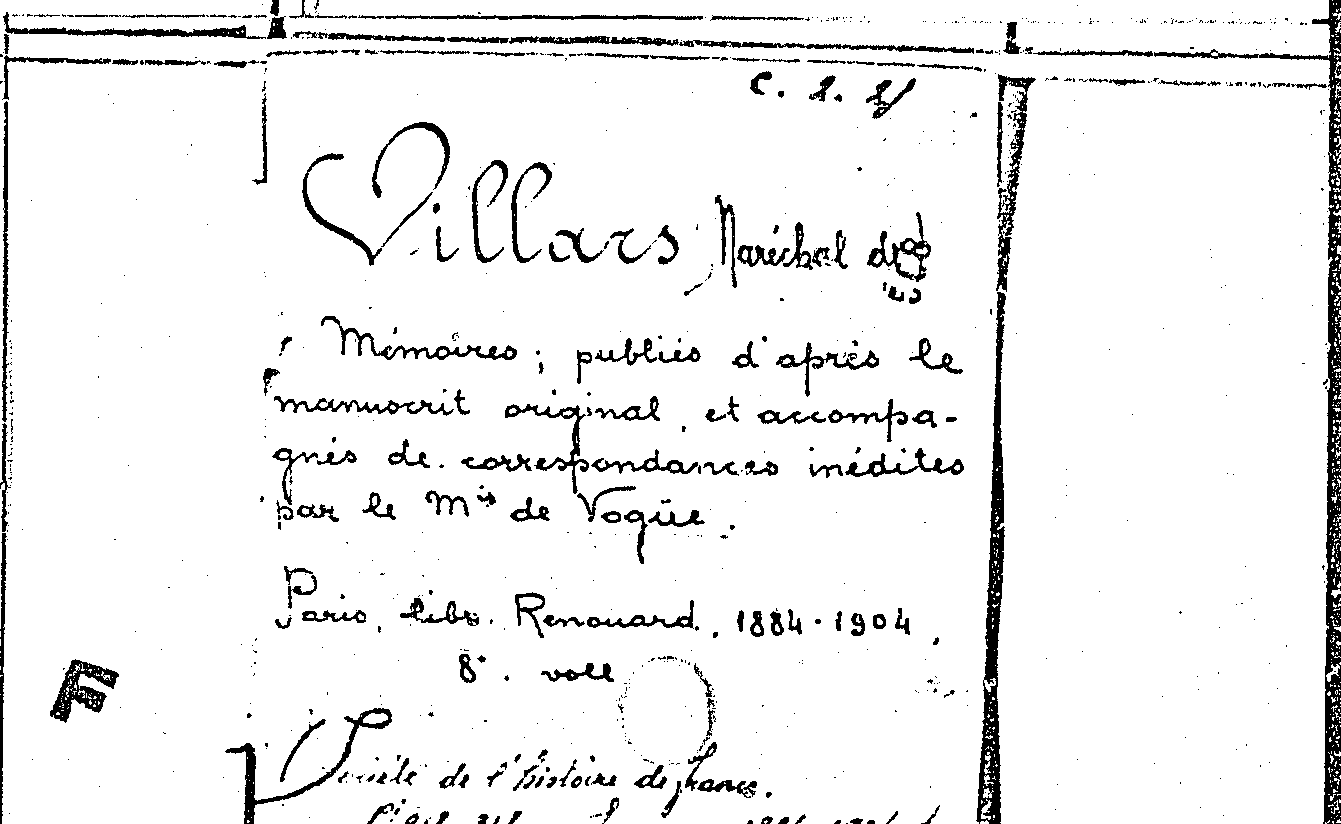 Villars, Maréchal de
Mémoires ; publiés d'après le
manuscrit original, et accompa-
gnés de correspondances inédites
par le Mis de Vogüe.
Paris, libr. Renouard, 1884-1904,
8°. voll
Société de l'histoire de france.
F